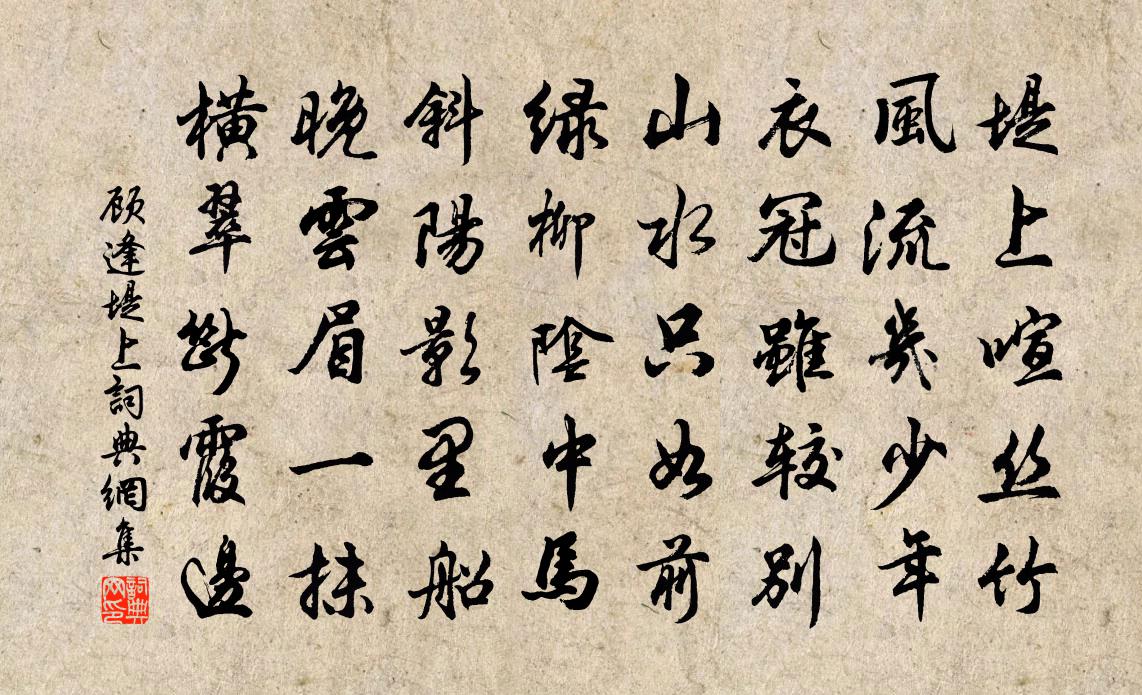 堤上喧丝竹
風流幾少年
衣冠雖较别
山水只如前
绿柳陰中馬
斜陽影里船
晚雲眉一抹
横翠斷霞邊
顾逢堤上詞典網集
詞典网印